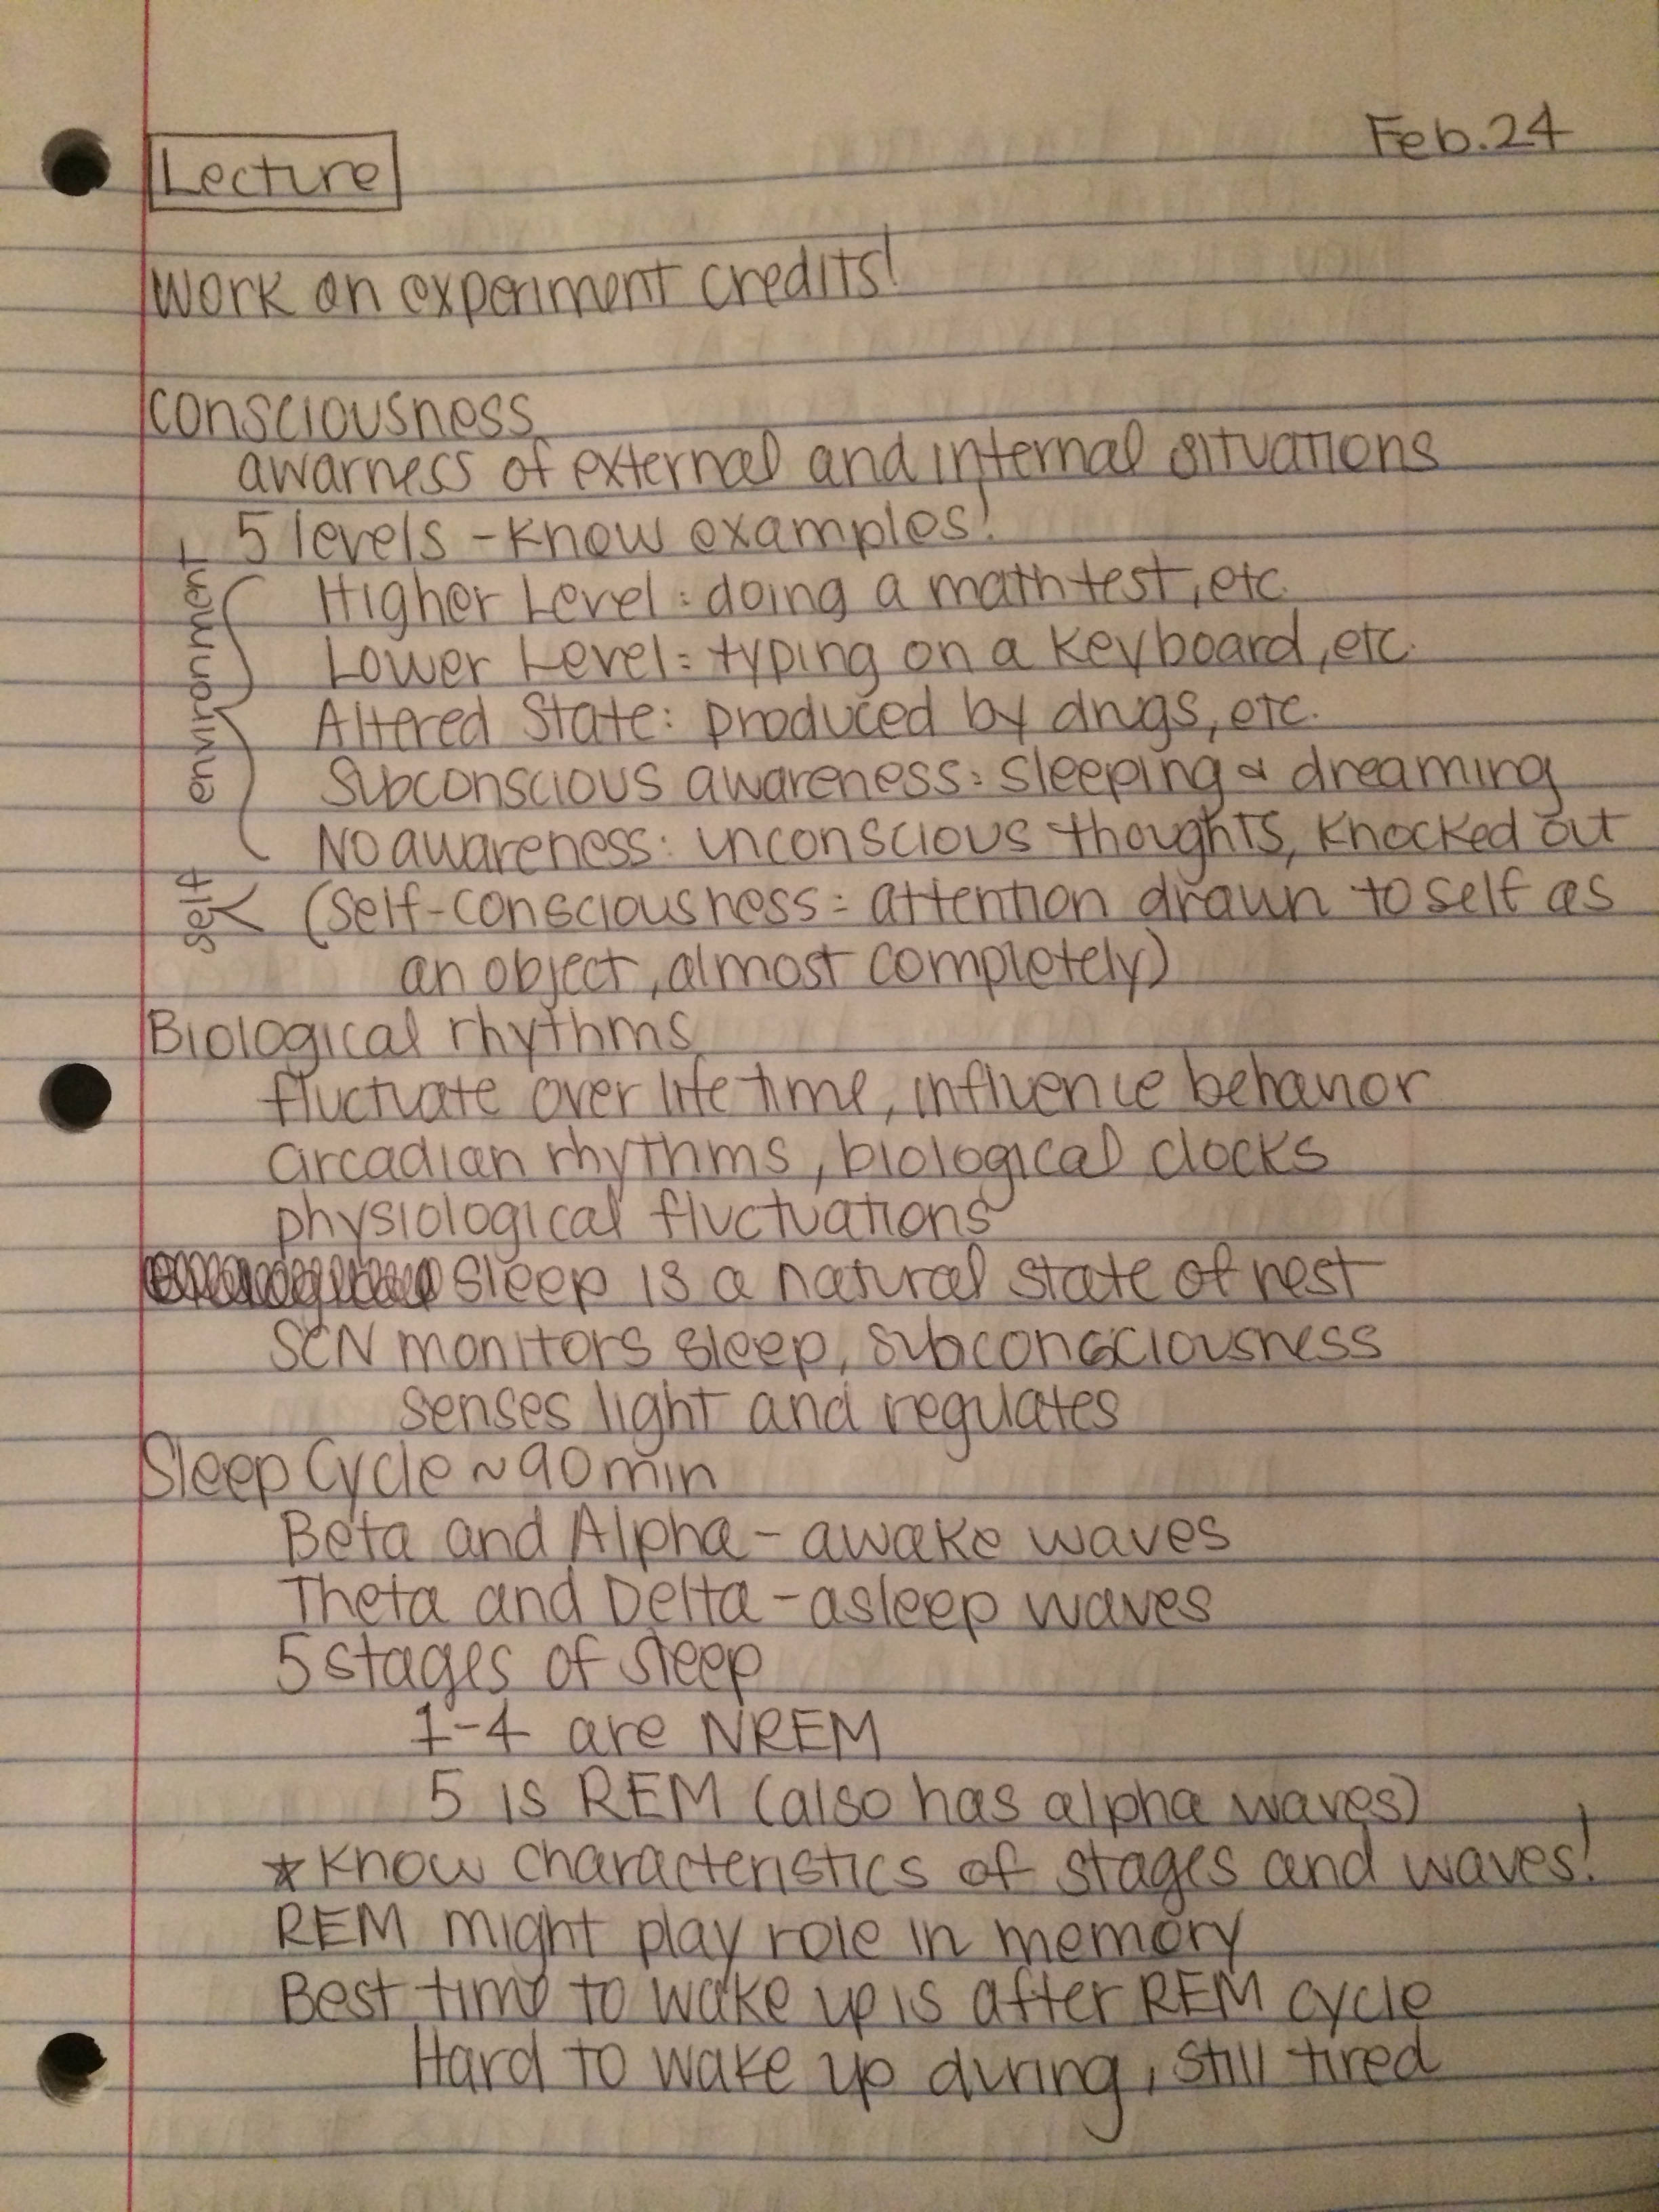 Feb.24
Lecture
Work on experiment credits!
Consciousness
awarness of external and internal situations
5 levels - Know examples!
environment
Higher Level: doing a math test, etc.
Lower Level: typing on a keyboard, etc.
Altered State: produced by drugs, etc.
Subconscious awareness: sleeping & dreaming
No awareness: unconscious thoughts, knocked out
self
(Self-consciousness: attention drawn to self as
an object, almost completely)
Biological rhythms
fluctuate over life time, influence behavior
circadian rhythms, biological clocks
physiological fluctuations
Sleep is a natural state of rest
SCN monitors sleep, subconsciousness
senses light and regulates
Sleep Cycle ~90min
Beta and Alpha - awake waves
Theta and Delta - asleep waves
5 stages of sleep
1-4 are NREM
5 is REM (also has alpha waves)
*Know characteristics of stages and waves!
REM might play role in memory
Best time to wake up is after REM cycle
Hard to wake up during, still tired